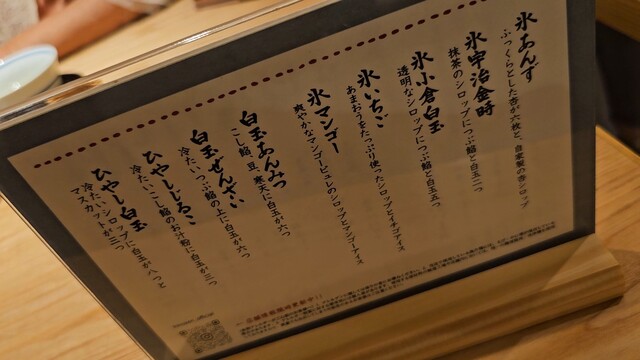 氷あんず
ふっくらとした杏が六枚と、自家製の杏シロップ
氷宇治金時
抹茶のシロップにつぶ餡と白玉二つ
氷小倉白玉
透明なシロップにつぶ餡と白玉五つ
氷いちご
あまおうをたっぷり使ったシロップとイチゴアイス
氷マンゴー
爽やかなマンゴーピュレのシロップとマンゴーアイス
白玉あんみつ
こし餡、豆、寒天に白玉が六つ
白玉ぜんざい
冷たいつぶ餡の上に白玉が六つ
ひやししるこ
冷たいこし餡のお汁粉に白玉が三つ
ひやし白玉
冷たいシロップに白玉が八つと
マスカットが三つ